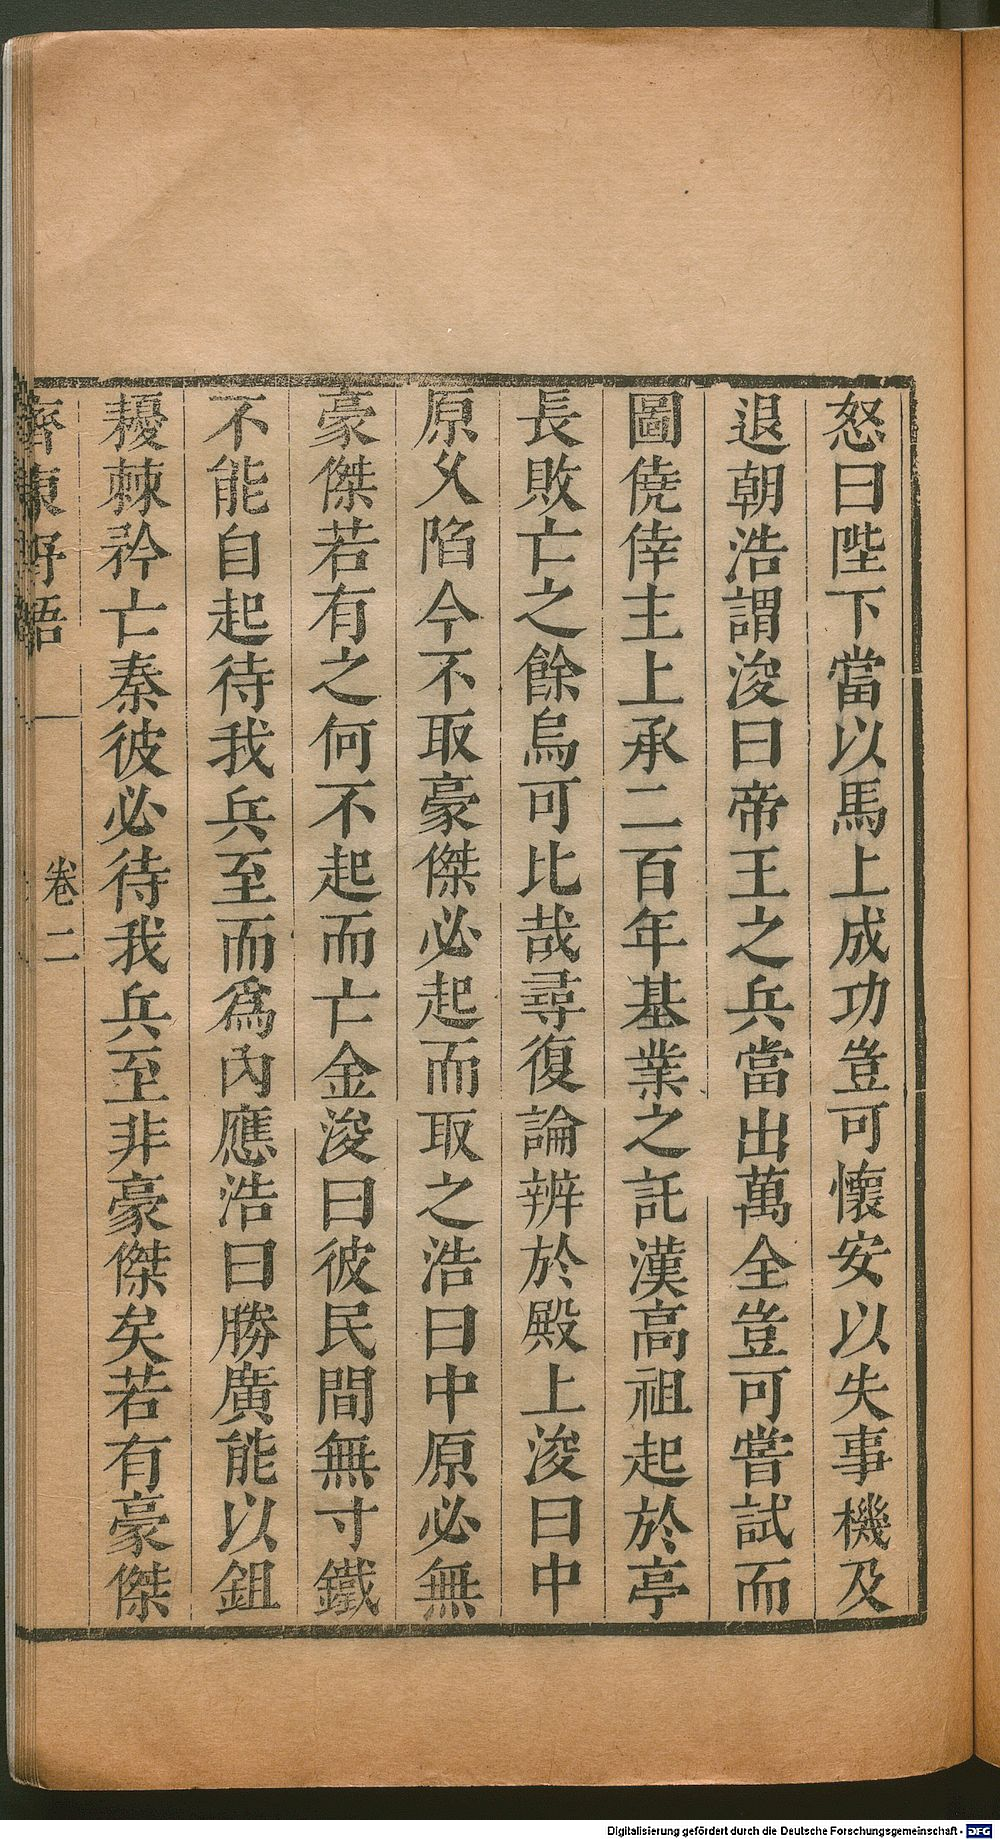 怒曰陛下當以馬上成功豈可懷安以失事機及
退朝浩謂浚曰帝王之兵當出萬全豈可嘗試而
圖僥倖主上承二百年基業之託漢高祖起於亭
長敗亡之餘烏可比哉尋復論辨於殿上浚曰中
原久陷今不取豪傑必起而取之浩曰中原必無
豪傑若有之何不起而亡金浚曰彼民間無寸鐵
不能自起待我兵至而爲內應浩曰勝廣能以鉏
耰棘矜亡秦彼必待我兵至非豪傑矣若有豪傑
齊東野語 卷二
Digitalisierung gefördert durch die Deutsche Forschungsgemeinschaft - DFG